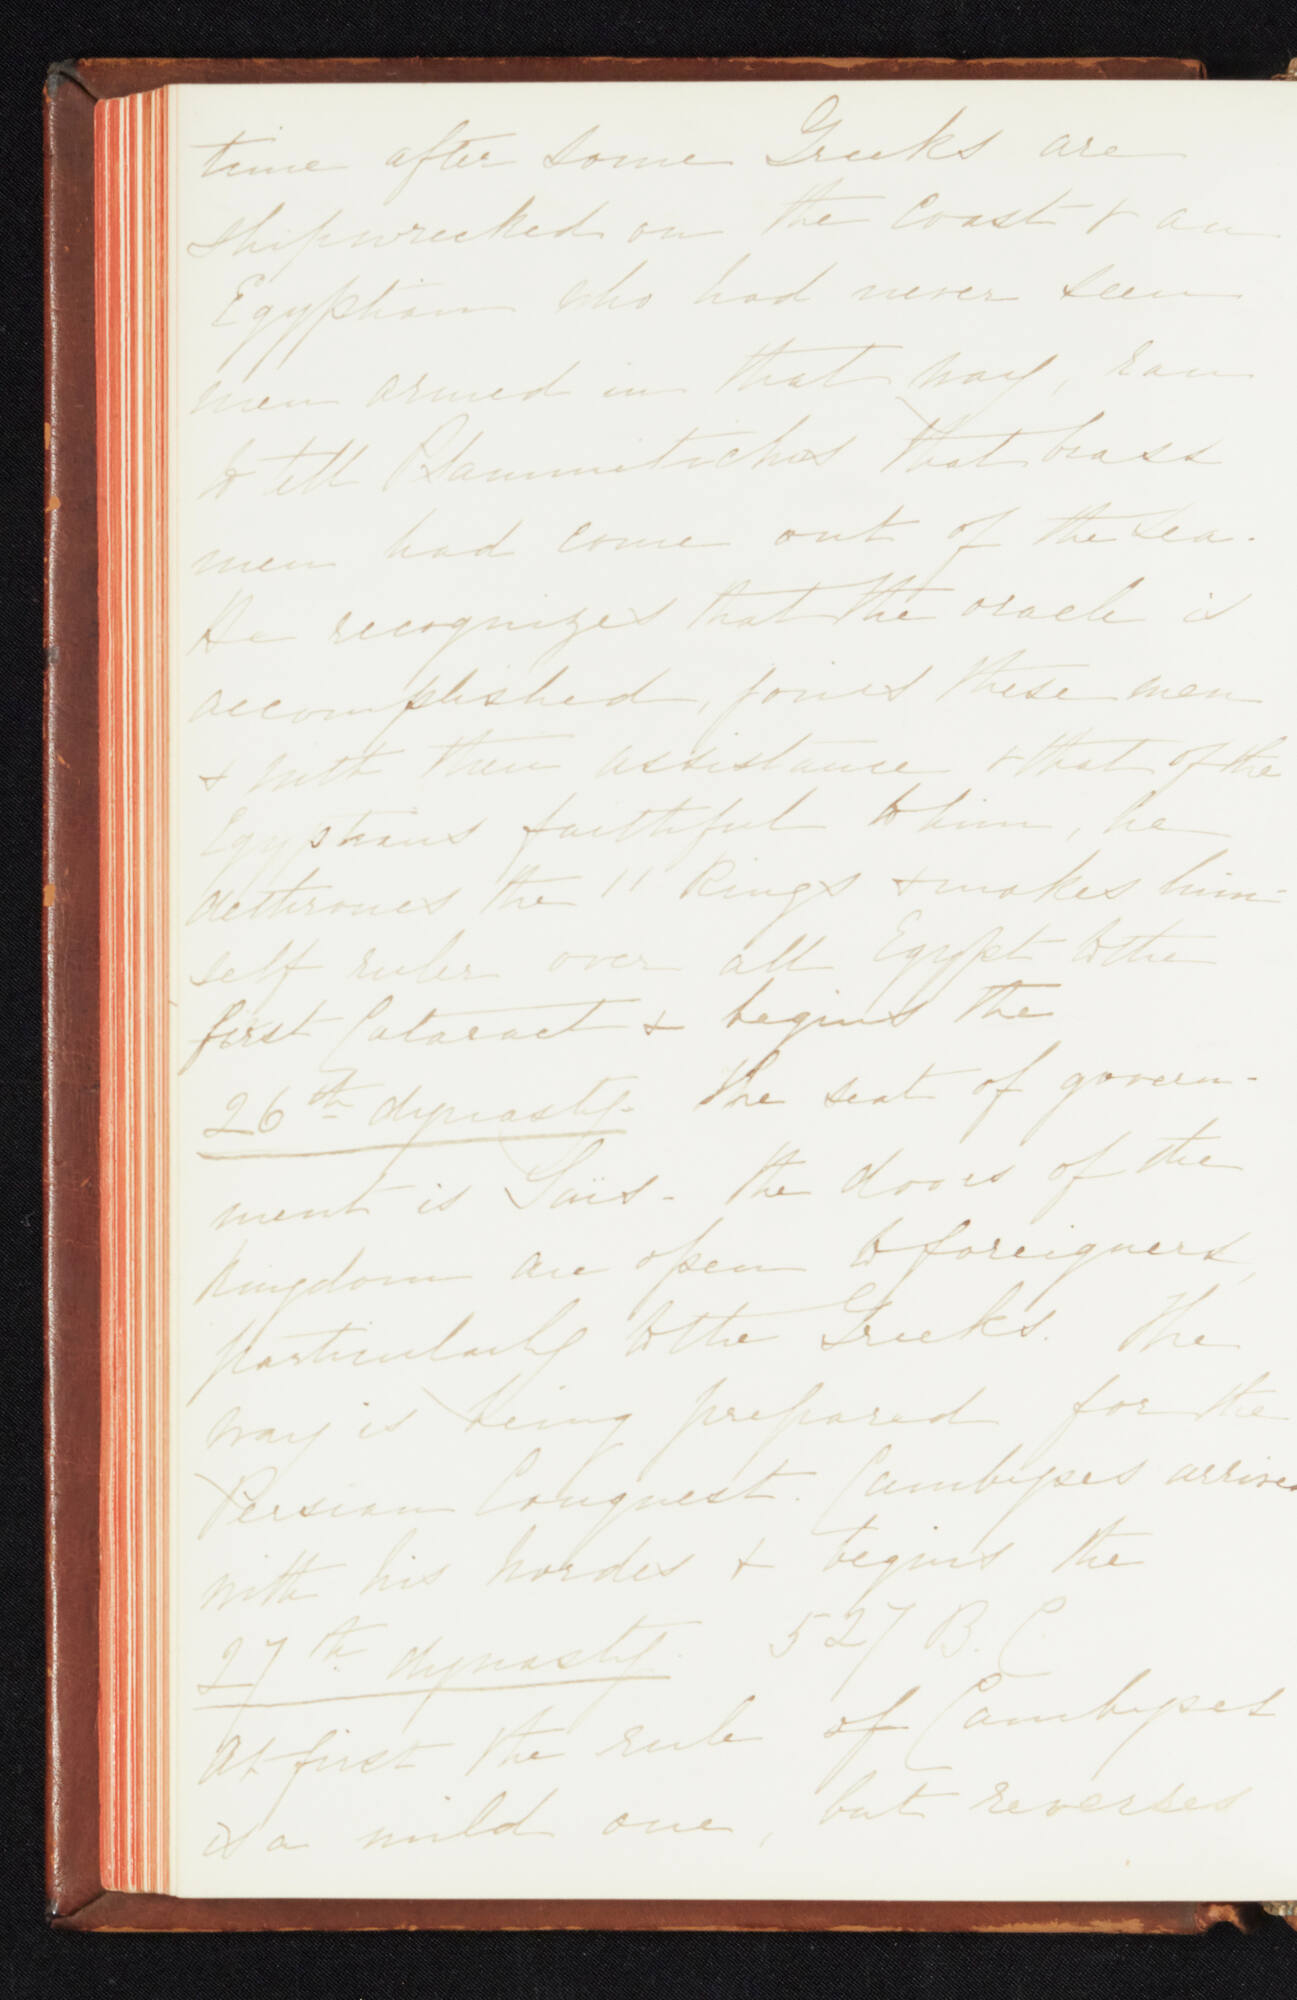 time after some Greeks are
shipwrecked on the coast & an
Egyptian who had never seen
men armed in that way, ran
to tell Psammitichos that brass
men had come out of the sea.
He recognizes that the oracle is
accomplished, joins these men
& with their assistance & that of the
Egyptians faithful to him, he
dethrones the 11 Kings & makes him-
self ruler over all Egypt to the
first Cataract & begins the
26th dynasty. The seat of govern-
ment is Saïs - The doors of the
Kingdom are open to foreigners,
particularly to the Greeks. The
way is being prepared for the
Persian Conquest. Cambyses arrives
with his hordes & begins the
27th dynasty. 527 B.C.
At first the rule of Cambyses
is a mild one, but reverses